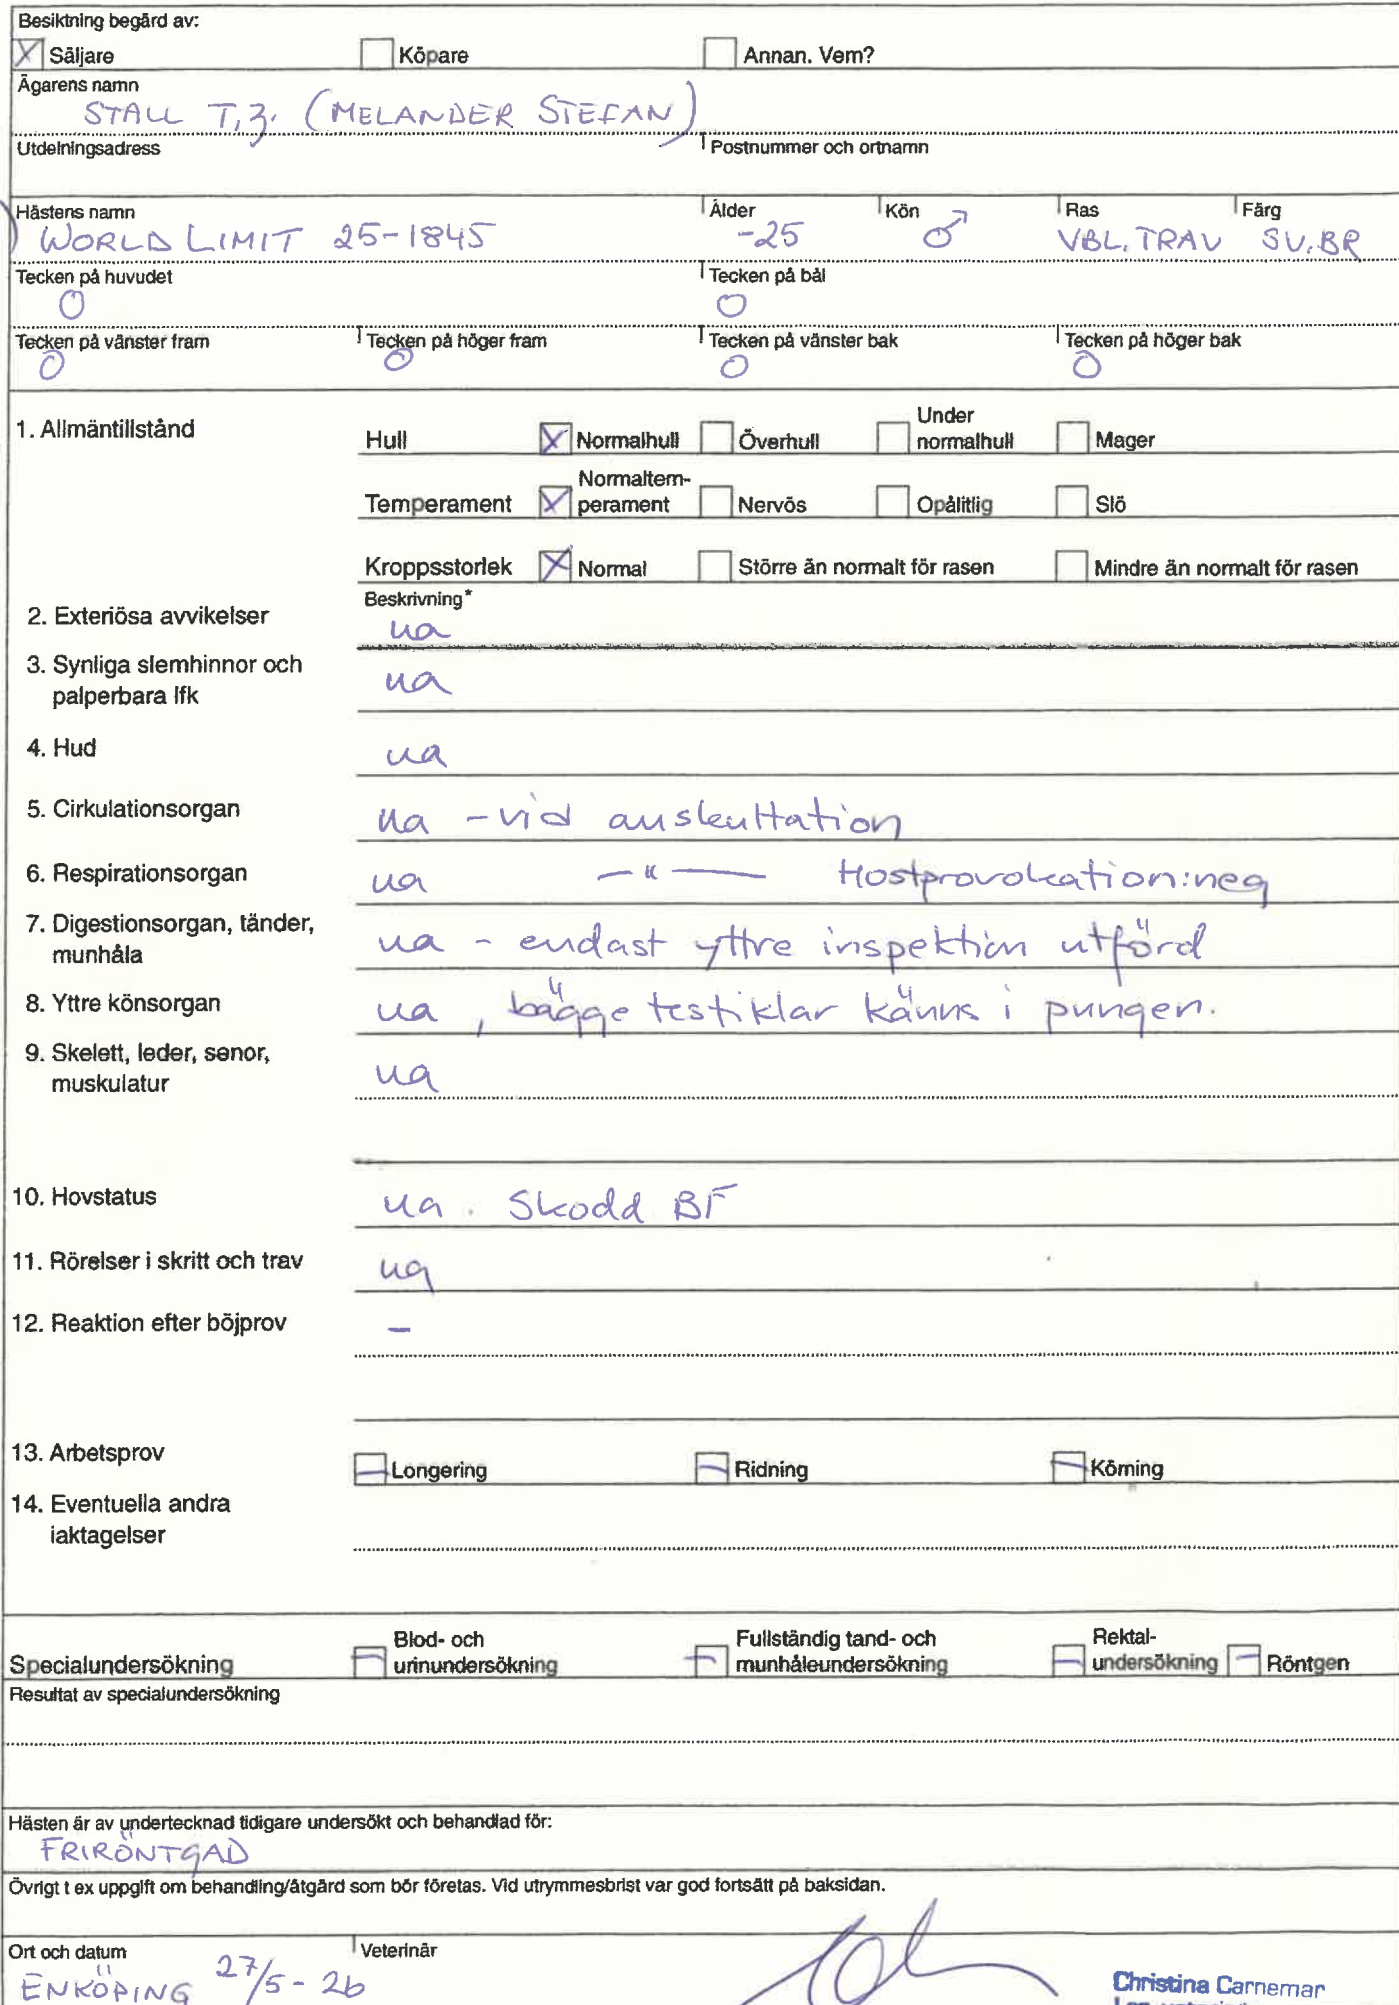 Besiktning begärd av:
X Säljare Köpare Annan. Vem?
Ägarens namn
STALL T.Z. (MELANDER STEFAN)
Utdelningsadress Postnummer och ortnamn
Hästens namn Ålder Kön Ras Färg
WORLD LIMIT 25-1845 -25 ♂ VBL.TRAV SV.BR
Tecken på huvudet Tecken på bål
0 0
Tecken på vänster fram Tecken på höger fram Tecken på vänster bak Tecken på höger bak
0 0 0 0
1. Allmäntillstånd Hull X Normalhull Överhull Under normalhull Mager
Temperament X Normaltem-perament Nervös Opålitlig Slö
Kroppsstorlek X Normal Större än normalt för rasen Mindre än normalt för rasen
Beskrivning*
2. Exteriösa avvikelser ua
3. Synliga slemhinnor och
palperbara lfk ua
4. Hud ua
5. Cirkulationsorgan ua - vid auskultation
6. Respirationsorgan ua —"— Hostprovokation:neg
7. Digestionsorgan, tänder,
munhåla ua - endast yttre inspektion utförd
8. Yttre könsorgan ua, bägge testiklar känns i pungen.
9. Skelett, leder, senor,
muskulatur ua
10. Hovstatus ua. Skodd BF
11. Rörelser i skritt och trav ua
12. Reaktion efter böjprov -
13. Arbetsprov - Longering - Ridning - Körning
14. Eventuella andra
iaktagelser
Specialundersökning - Blod- och urinundersökning - Fullständig tand- och munhåleundersökning - Rektal-undersökning - Röntgen
Resultat av specialundersökning
Hästen är av undertecknad tidigare undersökt och behandlad för:
FRIRÖNTGAD
Övrigt t ex uppgift om behandling/åtgärd som bör företas. Vid utrymmesbrist var god fortsätt på baksidan.
Ort och datum Veterinär
ENKÖPING 27/5-26
Christina Carnemar